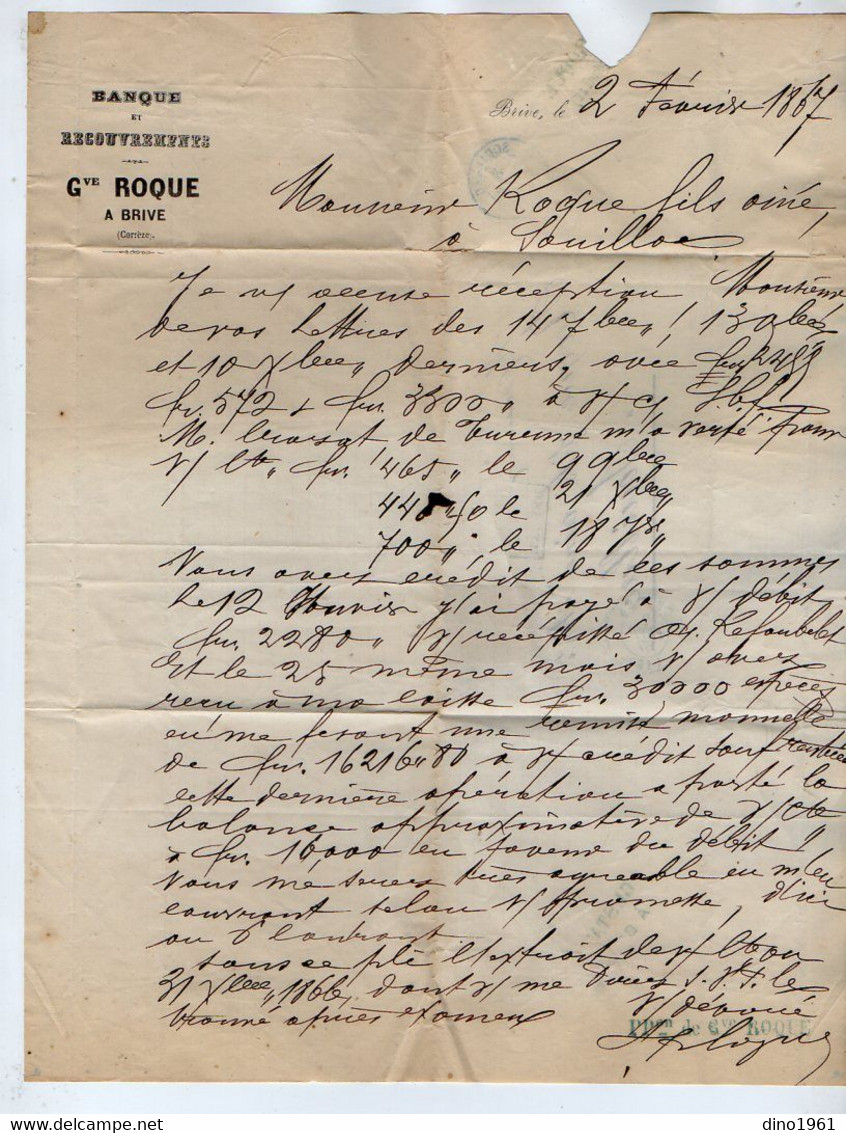 BANQUE
ET
RECOUVREMENTS
Gve ROQUE
A BRIVE
(Corrèze).
Brive, le 2 Février 1867
Monsieur Roque fils ainé,
à Souillac
Je v/ accuse réception, Monsieur
de vos lettres des 14 7bre, 13 9bre
et 10 Xbre derniers, avec fr.
fr. 572 & fr. 35000 à v/ c/ S.b.f.
M. de Turenne m'a versé pour
v/ Cte, fr. 465 " le 9 9bre
448 " 50 le 21 Xbre
700 " le 18
Vous avez crédit de ces sommes
Le 12 Janvier j'ai payé à v/ débit
fr. 2280 " v/ récépissé
Et le 25 même mois v/ avez
reçu à ma caisse fr. 30000 espèces
en me fesant une remise
de fr. 16216 " 80 à v/ crédit sauf
cette dernière opération a porté la
balance approximative de v/ Cte
à fr. 16,000 en faveur du débit
Vous me serez très agréable en m'en
couvrant selon v/ promesse, d'ici
au 8 courant
sous ce pli l'extrait de v/ Cte au
31 Xbre 1866, dont v/ me direz S.V.P. le
trouvé après examen
v/ dévoué
PPon de Gve ROQUE
dino1961